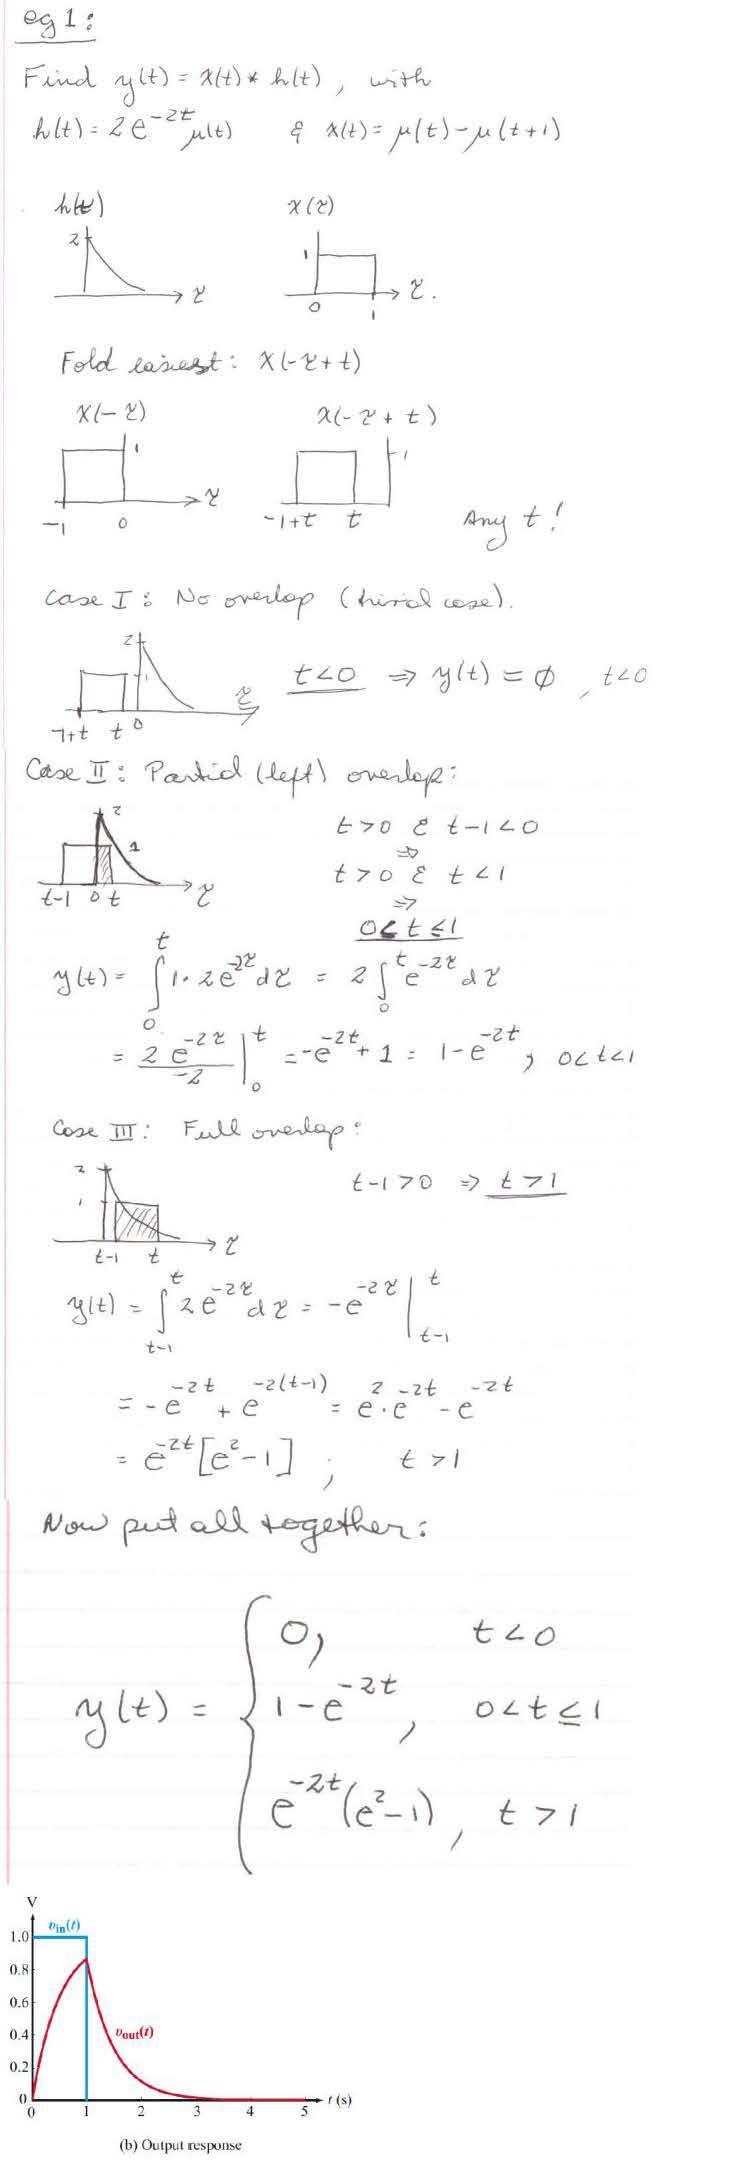 eg 1:
Find y(t) = x(t) * h(t), with
h(t) = 2e^{-2t} μ(t) & x(t) = μ(t) - μ(t+1)
h(τ) x(τ)
2 τ 1 0 1 τ.
Fold easiest: x(-τ+t)
x(-τ) x(-τ+t)
1 τ 1
-1 0 -1+t t Any t!
Case I: No overlap (trivial case).
2 1 τ t<0 ⇒ y(t) = ϕ, t<0
-1+t t 0
Case II: Partial (left) overlap:
2 t>0 & t-1<0
1 ⇒
τ t>0 & t<1
t-1 0 t ⇒
0<t≤1
y(t) = ∫_0^t 1·2e^{-2τ}dτ = 2∫_0^t e^{-2τ}dτ
= 2e^{-2τ}/-2 |_0^t = -e^{-2t} + 1 = 1-e^{-2t}, 0<t<1
Case III: Full overlap:
2 1 t-1>0 ⇒ t>1
t-1 t τ
y(t) = ∫_{t-1}^t 2e^{-2τ}dτ = -e^{-2τ} |_{t-1}^t
= -e^{-2t} + e^{-2(t-1)} = e^2·e^{-2t} - e^{-2t}
= e^{-2t}[e^2-1]; t>1
Now put all together:
0, t<0
y(t) = { 1-e^{-2t}, 0<t≤1
e^{-2t}(e^2-1), t>1
V
υin(t)
1.0
0.8
0.6
0.4 υout(t)
0.2
0 t (s)
0 1 2 3 4 5
(b) Output response